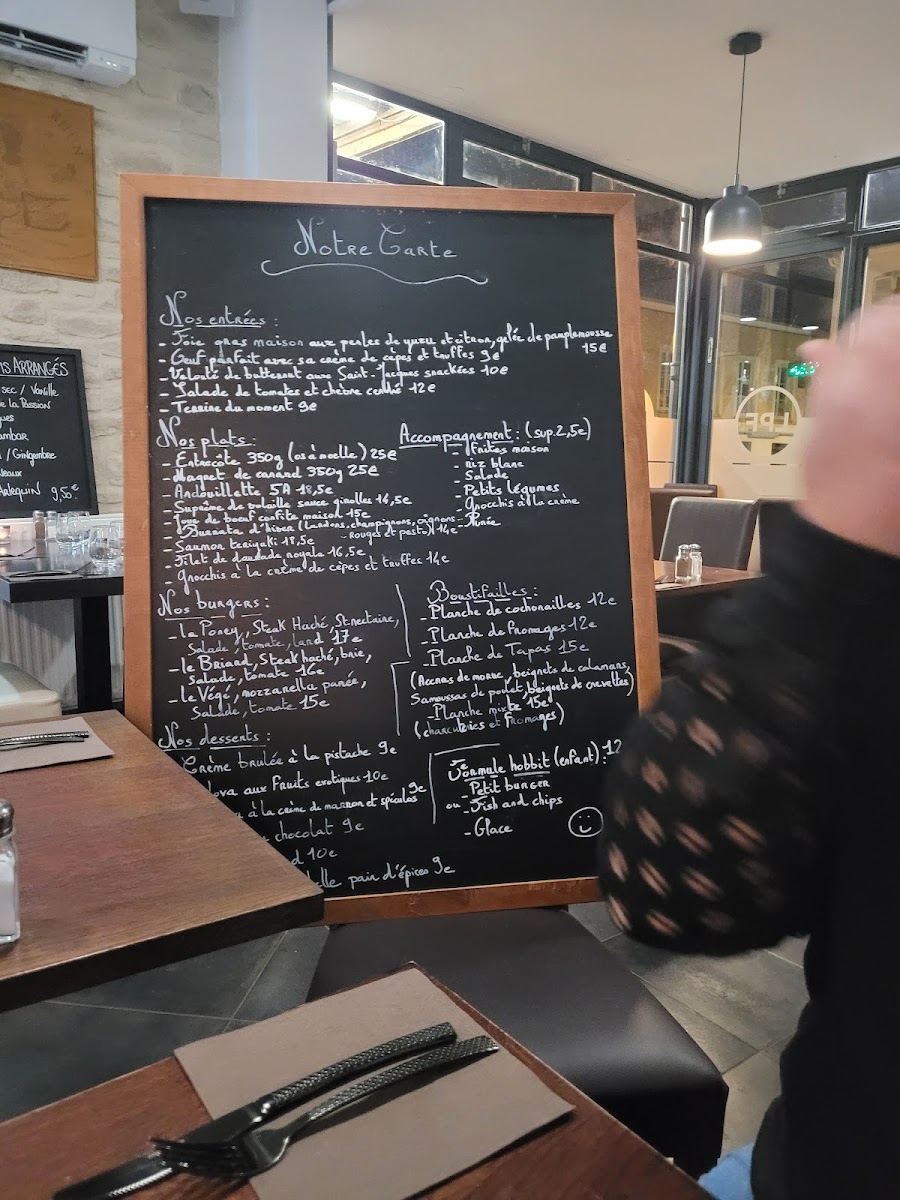 Notre Carte
Nos entrées :
- Foie gras maison aux perles de yuzu et citron, gelée de pamplemousse
15€
- Œuf parfait avec sa crème de cèpes et truffes 9€
- Velouté de butternut aux Saint-Jacques snackées 10€
- Salade de tomates et chèvre cendré 12€
- Terrine du moment 9€
Nos plats :
- Entrecôte 350g (os à moelle) 25€
- Magret de canard 350g 25€
- Andouillette 5A 18,5€
- Suprême de volaille sauce girolles 16,5€
- Joue de boeuf confite maison 15€
- Burrata d'hiver (lardons, champignons, oignons
rouges et pesto) 14€
- Saumon teriyaki 18,5€
- Filet de daurade royale 16,5€
- Gnocchis à la crème de cèpes et truffes 14€
Accompagnement : (sup. 2,5€)
- Frites maison
- Riz blanc
- Salade
- Petits légumes
- Gnocchis à la crème
- Purée
Nos burgers :
- Le Poney, Steak Haché, St-nectaire,
Salade, tomate, lard 17€
- le Briand, Steak haché, brie,
Salade, tomate 16€
- le Végé, mozzarella panée,
Salade, tomate 15€
Boustifailles :
- Planche de cochonailles 12€
- Planche de fromages 12€
- Planche de Tapas 15€
(Accras de morue, beignets de calamars,
Samoussas de poulet, beignets de crevettes)
- Planche mixte 15€
(charcuteries et fromages)
Nos desserts :
Crème brulée à la pistache 9€
lova aux fruits exotiques 10€
à la crème de marron et spéculos 9€
chocolat 9€
d 10€
belle pain d'épices 9€
Formule hobbit (enfant) : 12
- Petit burger
ou - Fish and chips
- Glace
MS ARRANGÉS
SEC / Vanille
de la Passion
gues
ambar
/ Gingembre
eaux
ARLEQUIN 9,50€
LPF